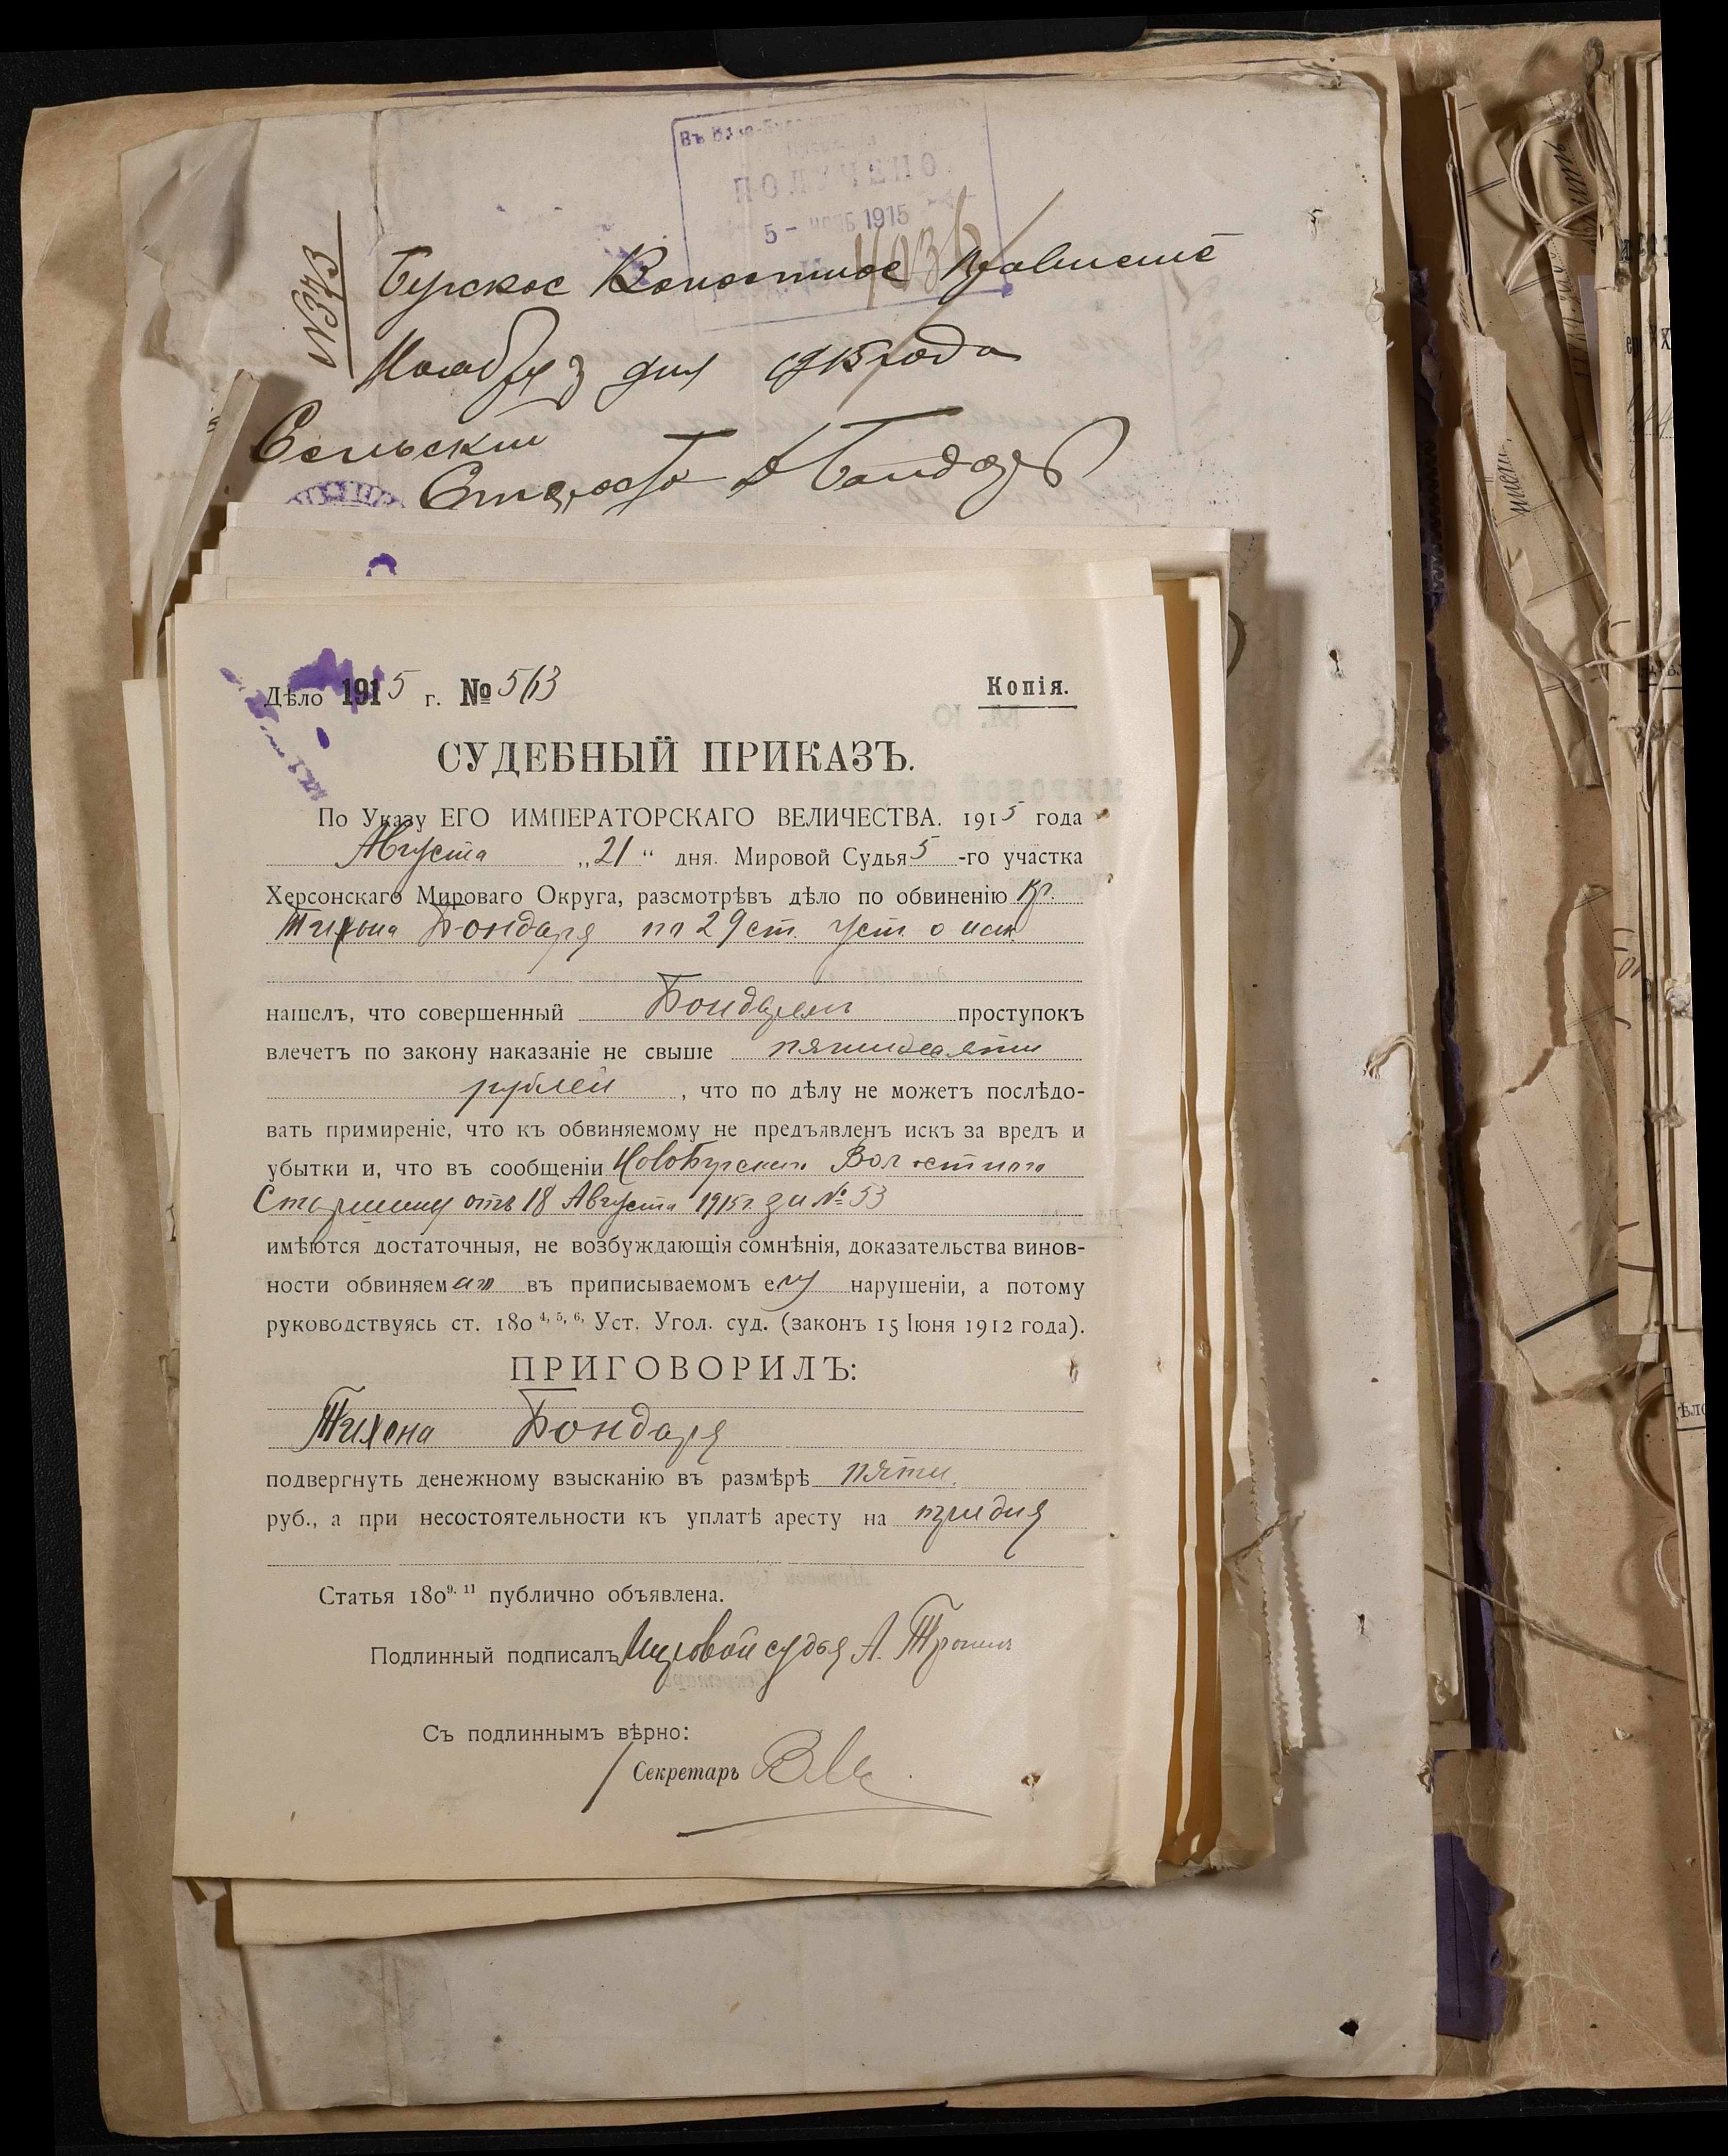 Въ Ново-Бугское
ПОЛУЧЕНО
5 - НОЯБ 1915
№ 373
Бугское Волостное Правление
Ноября 3 дня 1915 года
Сельский
Староста Бондарь
Дѣло 1915 г. № 513
Копія.
СУДЕБНЫЙ ПРИКАЗЪ.
По Указу ЕГО ИМПЕРАТОРСКАГО ВЕЛИЧЕСТВА. 1915 года
Августа „21“ дня. Мировой Судья 5-го участка
Херсонскаго Мироваго Округа, разсмотрѣвъ дѣло по обвиненію кр.
Тихона Бондаря по 29 ст. Уст. о нак.
нашелъ, что совершенный Бондаремъ проступокъ
влечетъ по закону наказаніе не свыше пятидесяти
рублей, что по дѣлу не можетъ послѣдо-
вать примиреніе, что къ обвиняемому не предъявленъ искъ за вредъ и
убытки и, что въ сообщеніи Новобугскаго Волостного
Старшины отъ 18 Августа 1915 г. за № 53
имѣются достаточныя, не возбуждающія сомнѣнія, доказательства винов-
ности обвиняемаго въ приписываемомъ ему нарушеніи, а потому
руководствуясь ст. 180 4, 5, 6, Уст. Угол. суд. (законъ 15 Іюня 1912 года).
ПРИГОВОРИЛЪ:
Тихона Бондаря
подвергнуть денежному взысканію въ размѣрѣ пяти
руб., а при несостоятельности къ уплатѣ аресту на три дня
Статья 180 9. 11 публично объявлена.
Подлинный подписалъ Мировой судья А.
Съ подлиннымъ вѣрно:
Секретарь